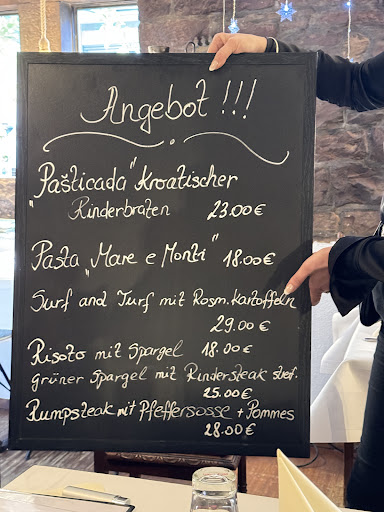 Angebot !!!
"Pašticada" Kroatischer
Rinderbraten 23.00 €
Pasta "Mare e Monti" 18.00 €
Surf and Turf mit Rosm. Kartoffeln
29.00 €
Risoto mit Spargel 18.00 €
Grüner Spargel mit Rindersteak streif.
25.00 €
Rumpsteak mit Pfeffersosse + Pommes
28.00 €